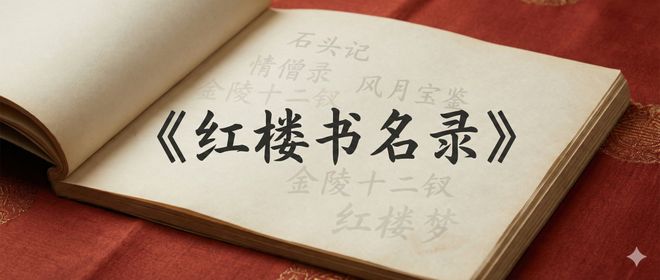 石头记
情僧录
风月宝鉴
金陵十二钗
《红楼书名录》
金陵十二钗
红楼梦